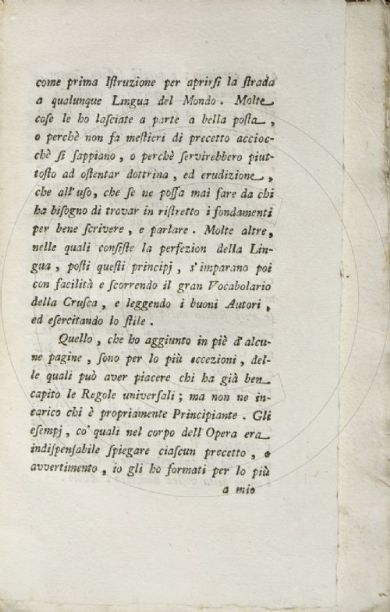 come prima Iſtruzione per aprirſi la ſtrada
a qualunque Lingua del Mondo. Molte
coſe le ho laſciate a parte a bella poſta,
o perchè non fa meſtieri di precetto accioc-
chè ſi ſappiano, o perchè ſervirebbero piut-
toſto ad oſtentar dottrina, ed erudizione,
che all'uſo, che ſe ne poſſa mai fare da chi
ha biſogno di trovar in riſtretto i fondamenti
per bene ſcrivere, e parlare. Molte altre,
nelle quali conſiſte la perfezion della Lin-
gua, poſti queſti principj, s'imparano poi
con facilità e ſcorrendo il gran Vocabolario
della Cruſca, e leggendo i buoni Autori,
ed eſercitando lo ſtile.
Quello, che ho aggiunto in piè d'alcu-
ne pagine, ſono per lo più eccezioni, del-
le quali può aver piacere chi ha già ben
capito le Regole univerſali; ma non ne in-
carico chi è propriamente Principiante. Gli
eſempj, co' quali nel corpo dell'Opera era
indiſpenſabile ſpiegare ciaſcun precetto, o
avvertimento, io gli ho formati per lo più
a mio